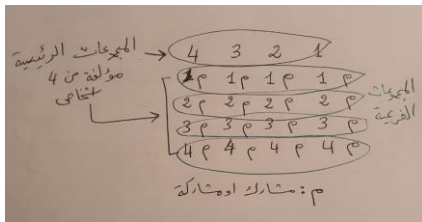 المجموعات الرئيسية
مؤلفة من 4
اشخاص
4 3 2 1
م1 م1 م1 م1
م2 م2 م2 م2
م3 م3 م3 م3
م4 م4 م4 م4
المجموعات
الفرعية
م: مشارك او مشاركة